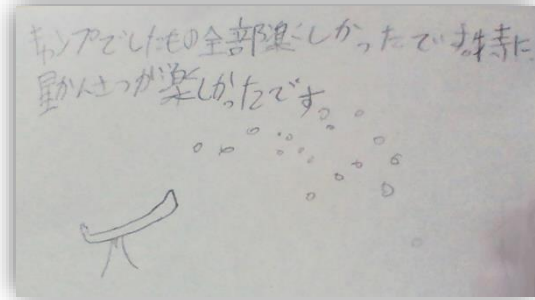 キャンプでしたもの全部楽しかったです。特に
星かんさつが楽しかったです